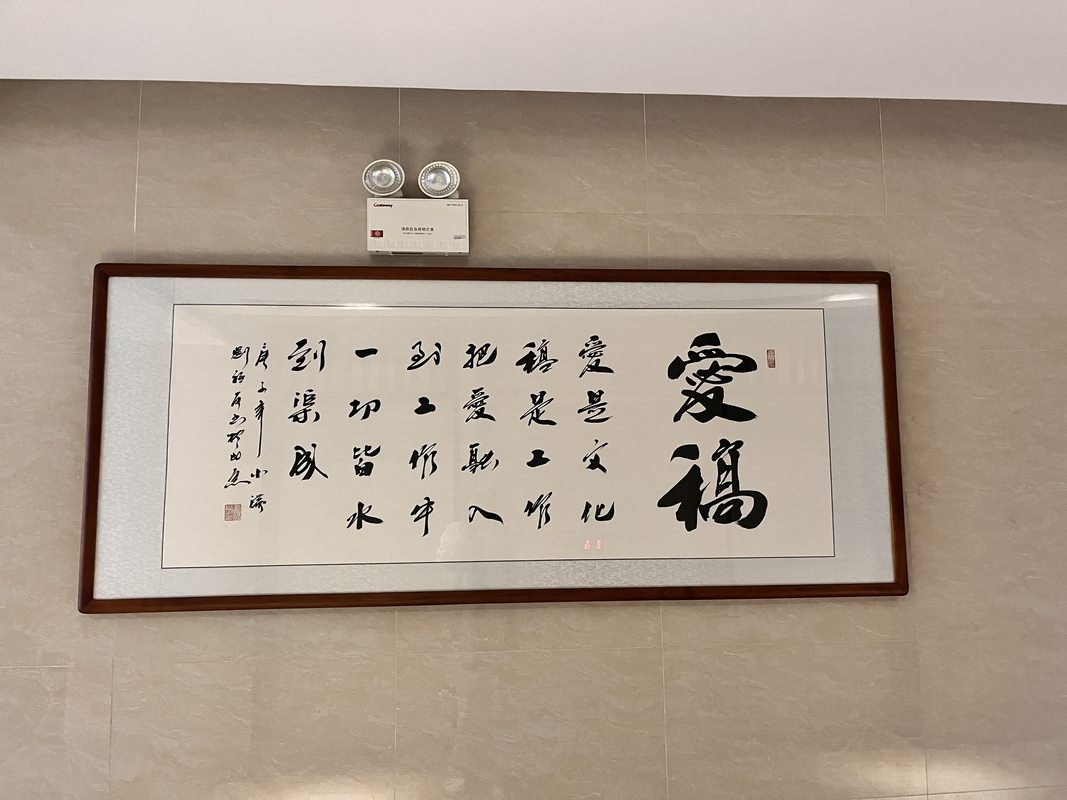 Gateway
消防应急照明灯具
愛稿
愛是文化
稿是工作
把愛融入
到工作中
一切皆水
到渠成
庚子年小滿